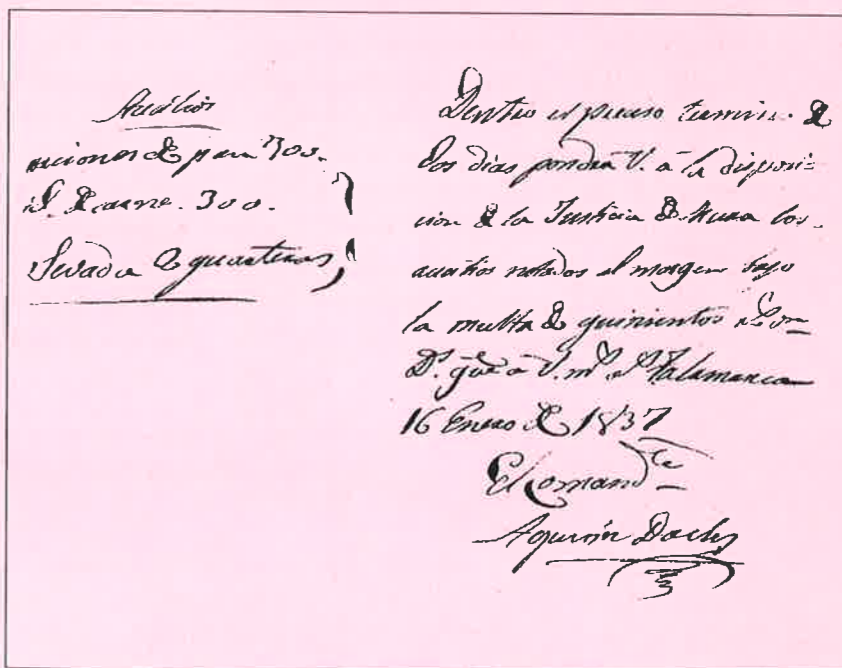 Auxilios
raciones de pan 300.
Id. de carne. 300.
Sevada 2 quarteras
Dentro el preciso termino de
dos dias pondrá V. á la disposi=
cion de la Justicia de Mura los
auxilios notados al margen bajo
la multa de quinientos
D.s gue á V. m.s a.s Talamanca
16 Enero de 1837
El Comand.te
Agustin Dachs